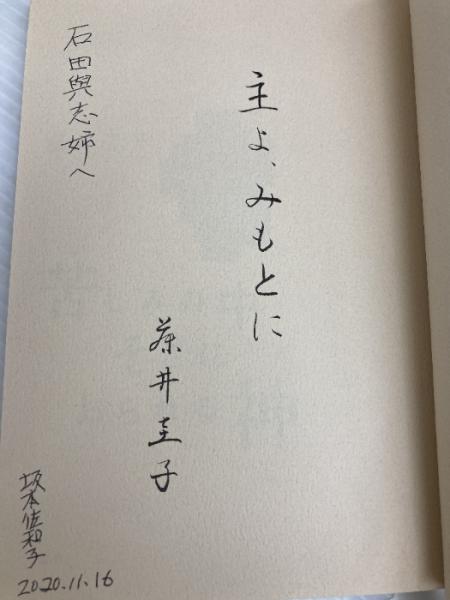 主よ、みもとに
藤井圭子
石田與志姉へ
坂本佐和子
2020.11.16